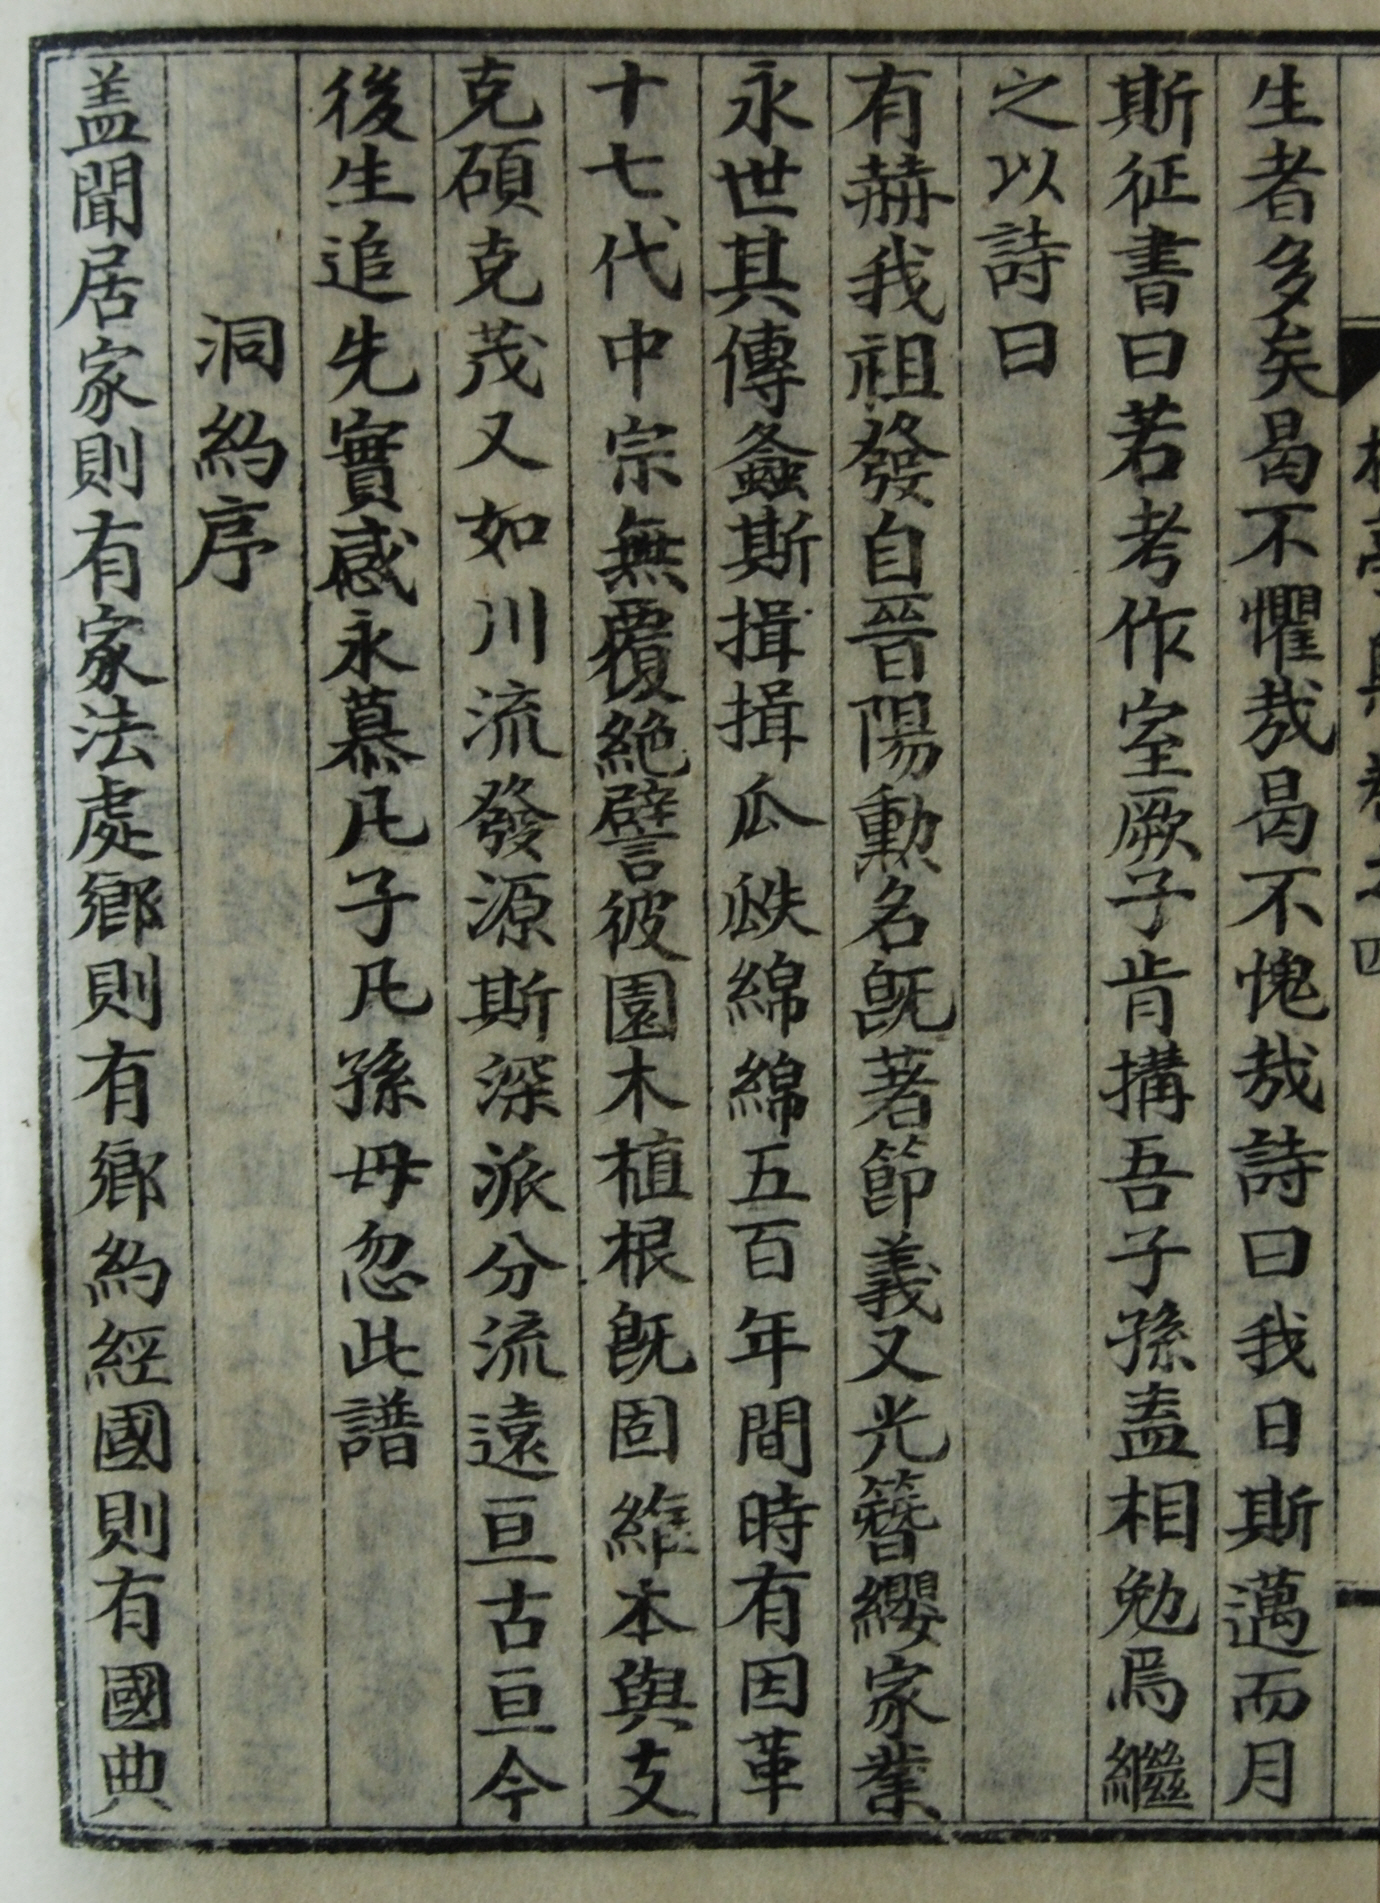 生者多矣曷不懼哉曷不愧哉詩曰我日斯邁而月
斯征書曰若考作室厥子肯搆吾子孫盍相勉焉繼
之以詩曰
有赫我祖發自晉陽勳名旣著節義又光簪纓家業
永世其傳螽斯揖揖瓜瓞綿綿五百年間時有因革
十七代中宗無覆絶譬彼園木植根旣固維本與支
克碩克茂又如川流發源斯深派分流遠亘古亘今
後生追先實感永慕凡子凡孫毋忽此譜
洞約序
盖聞居家則有家法處鄕則有鄕約經國則有國典